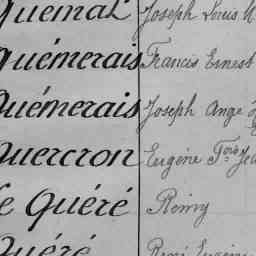 Quémal Joseph Louis
Quémerais Francis Ernest
Quémerais Joseph Ange
Quercron Eugène Fois
Le Quéré Rémy
Quéré René Eugène